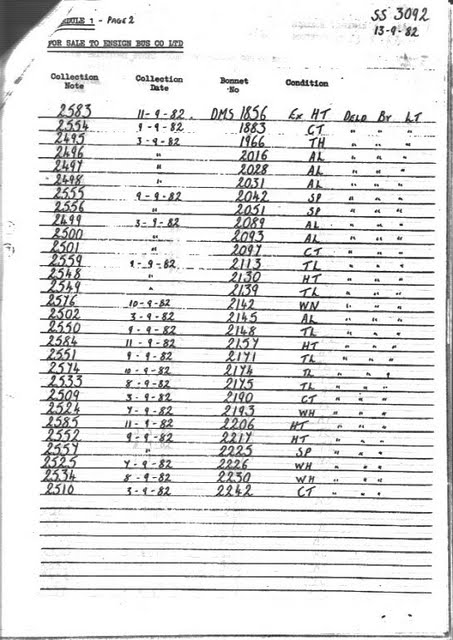 DULE 1 - PAGE 2
SS 3092
13-9-82
FOR SALE TO ENSIGN BUS CO LTD
Collection Note Collection Date Bonnet No Condition
2583 11-9-82. DMS 1856 Ex HT DELD BY LT
2554 9-9-82 1883 CT " " "
2495 3-9-82 1966 TH " " "
2496 " 2016 AL " " "
2497 " 2028 AL " " "
2498 " 2031 AL " " "
2555 9-9-82 2042 SP " " "
2556 " 2051 SP " " "
2499 3-9-82 2089 AL " " "
2500 " 2093 AL " " "
2501 " 2097 CT " " "
2559 9-9-82 2113 TL " " "
2548 " 2130 HT " " "
2549 " 2139 TL " " "
2576 10-9-82 2142 WN " " "
2502 3-9-82 2145 AL " " "
2550 9-9-82 2148 TL " " "
2584 11-9-82 2157 HT " " "
2551 9-9-82 2171 TL " " "
2574 10-9-82 2174 TL " " "
2533 8-9-82 2175 TL " " "
2509 3-9-82 2190 CT " " "
2524 7-9-82 2193 WH " " "
2585 11-9-82 2206 HT " " "
2552 9-9-82 2217 HT " " "
2557 " 2225 SP " " "
2525 7-9-82 2226 WH " " "
2534 8-9-82 2230 WH " " "
2510 3-9-82 2242 CT " " "